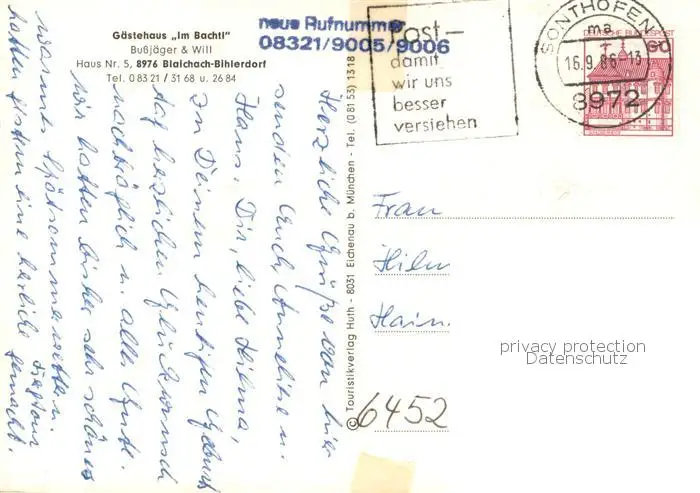 Gästehaus „Im Bachtl"
Bußjäger & Will
Haus Nr. 5, 8976 Blaichach-Bihlerdorf
Tel. 0 83 21 / 31 68 u. 26 84
neue Rufnummer
08321/9005/9006
Post–
damit
wir uns
besser
verstehen
SONTHOFEN
ma
16.9.86-13
8972
DEUTSCHE BUNDESPOST
60
Herzliche Grüße von hier
senden Euch, Anneliese u.
Hans. Dir, liebe Hilma,
zu Deinem heutigen Geburts
tag herzlichen Glückwunsch
nachträglich u. alles Gute.
Wir hatten bisher sehr schönes
warmes Spätsommerwetter u.
hatten gestern eine herrliche
gemacht.
© Touristikverlag Huth - 8031 Eichenau b. München - Tel. (0 81 53) 1318
Frau
Hilm
Hain.
6452
privacy protection
Datenschutz